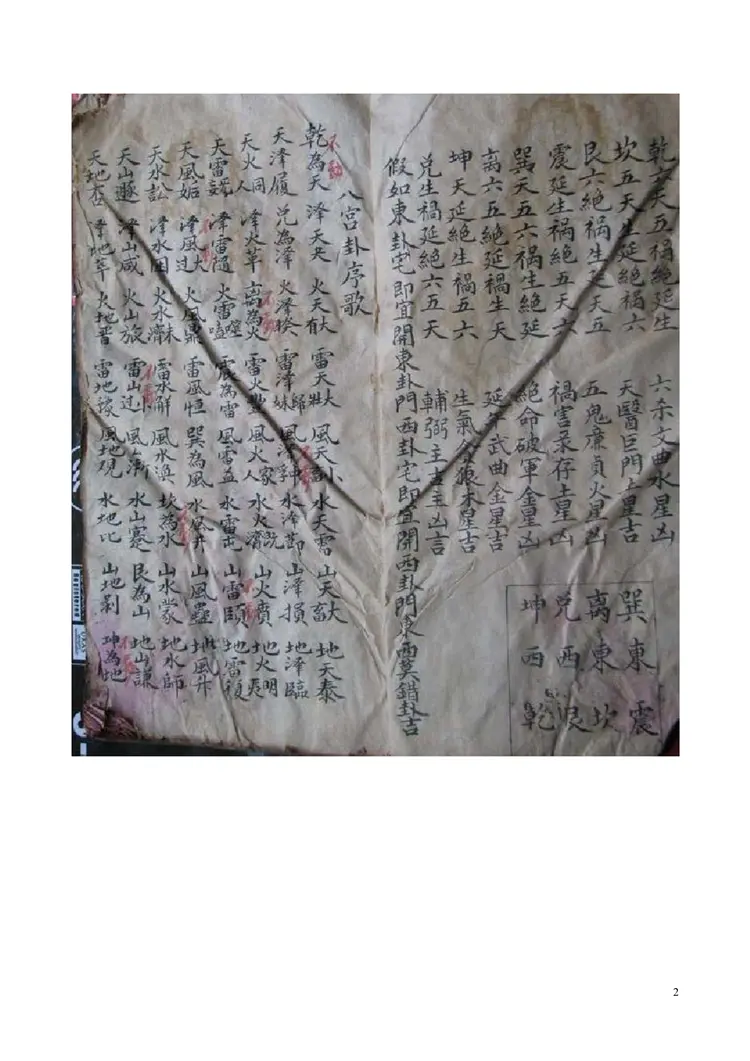 乾六天五禍絕延生 六杀文曲水星凶
坎五天生延絕禍六 天醫巨門土星吉
艮六絕禍生延天五 五鬼廉貞火星凶
震延生禍絕五天六 禍害录存土星凶
巽天五六禍生絕延 絕命破軍金星凶
离六五絕延禍生天 延年武曲金星吉
坤天延絕生禍五六 生氣貪狼木星吉
兌生禍延絕六五天 輔弼主吉主凶言
假如東卦宅即宜開東卦門西卦宅即宜開西卦門東西莫錯卦吉
巽東震
离東坎
兌西艮
坤西乾
八宮卦序歌
乾為天 澤天夬 火天大有 雷天大壯 風天小畜 水天需 山天大畜 地天泰
天澤履 兌為澤 火澤睽 雷澤歸妹 風澤中孚 水澤節 山澤損 地澤臨
天火同人 澤火革 离為火 雷火豐 風火家人 水火既濟 山火賁 地火明夷
天雷无妄 澤雷隨 火雷噬嗑 震為雷 風雷益 水雷屯 山雷頤 地雷復
天風姤 澤風大过 火風鼎 雷風恒 巽為風 水風井 山風蠱 地風升
天水訟 澤水困 火水未濟 雷水解 風水渙 坎為水 山水蒙 地水師
天山遯 澤山咸 火山旅 雷山小过 風山漸 水山蹇 艮為山 地山謙
天地否 澤地萃 火地晋 雷地豫 風地观 水地比 山地剥 坤為地
2